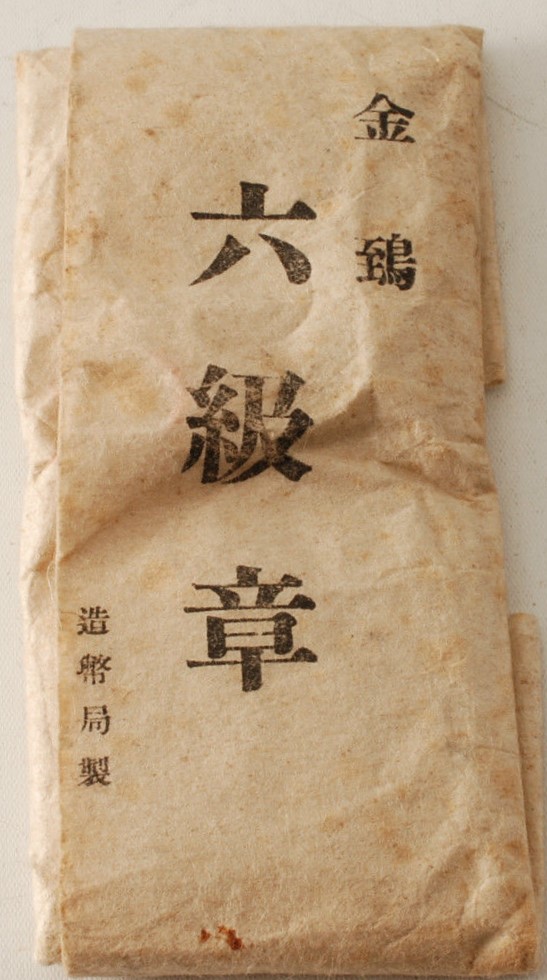 金鵄
六級章
造幣局製